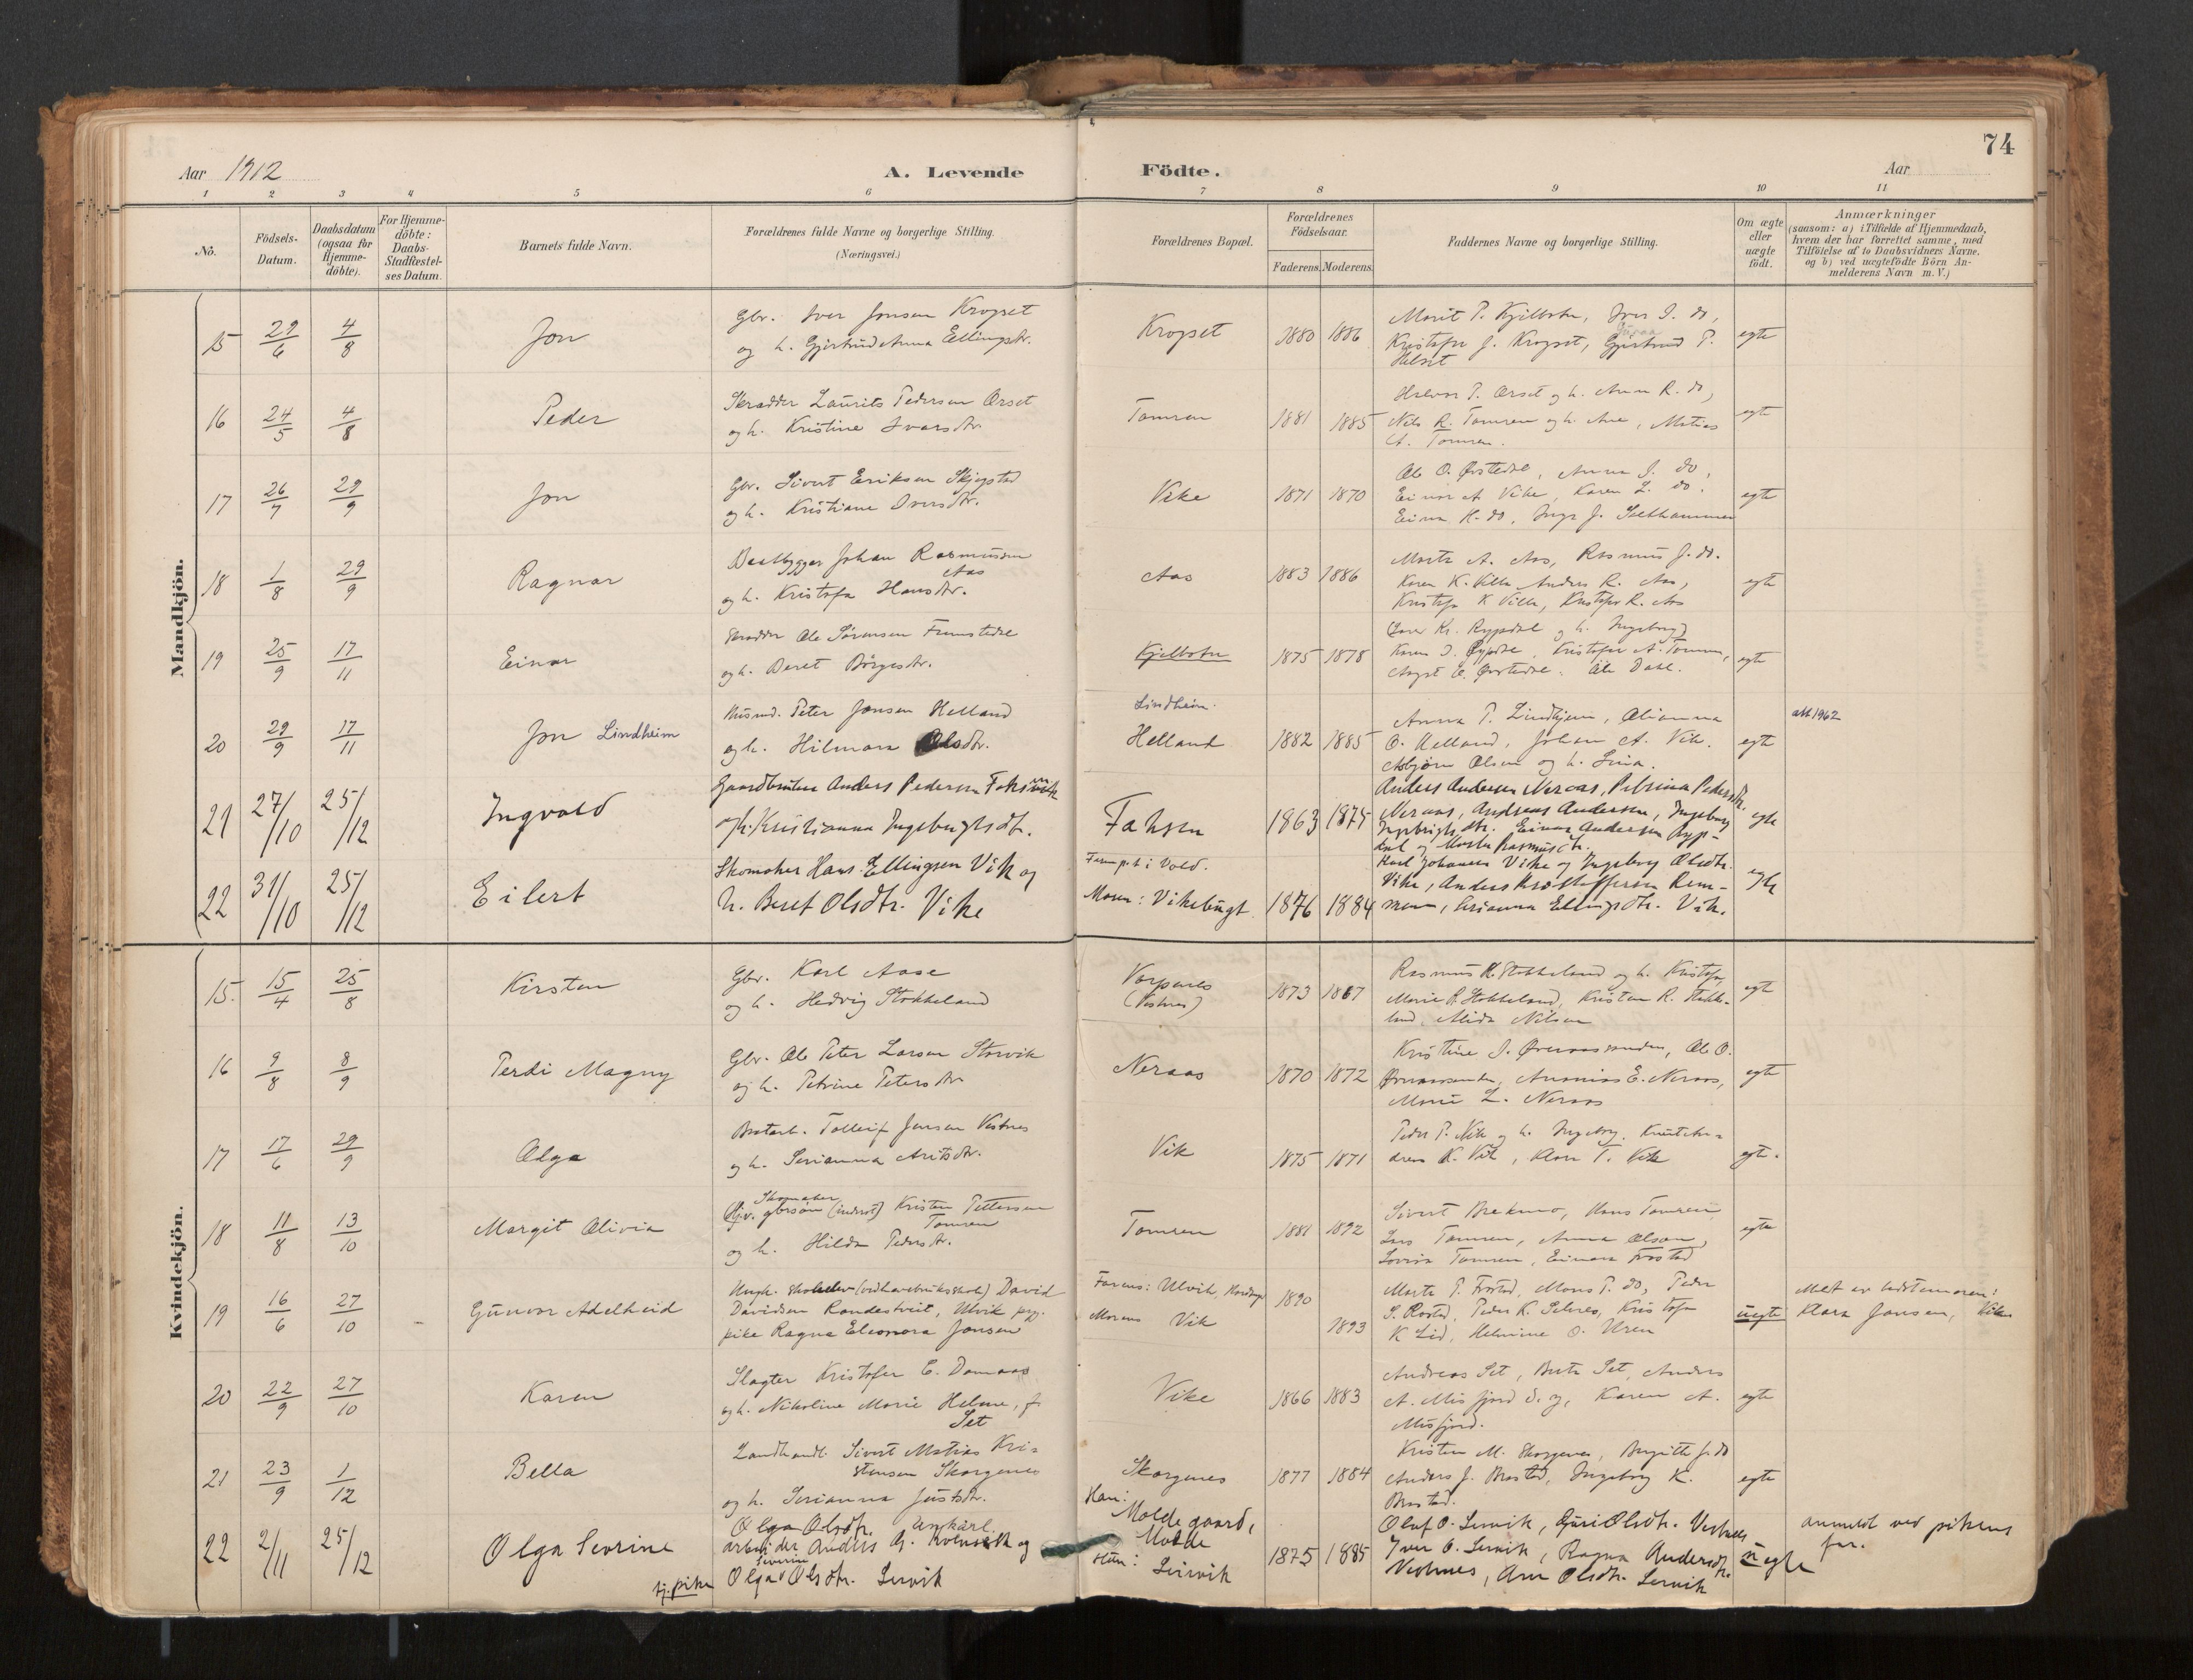 74
Aar 1912
A. Levende
Födte.
Aar
1 2 3 4 5 6 7 8 9 10 11
No.
Födsels-
Datum.
Daabsdatum
(ogsaa for
Hjemme-
döbte).
For Hjemme-
döbte:
Daabs-
Stadfæstel-
ses Datum.
Barnets fulde Navn.
Forældrenes fulde Navne og borgerlige Stilling.
(Næringsvei.)
Forældrenes Bopæl.
Forældrenes
Födselsaar.
Faderens. Moderens.
Faddernes Navne og borgerlige Stilling.
Om ægte
eller
uægte
födt.
Anmærkninger
(saasom: a) i Tilfælde af Hjemmedaab,
hvem der har forrettet samme, med
Tilföielse af to Daabsvidners Navne,
og b) ved uægtefödte Börn An-
melderens Navn m. V.)
Mandkjön.
15 29/6 4/8 Jon
Gbr. Iver Jonsen Krogset
og h. Gjertrud Anna Ellingsdtr.
Krogset 1880 1886
Marit P. Kjelbotn, Iver I. do,
Kristofer J. Krogset, Gjertrud P.
Helset
egte
16 24/5 4/8 Peder
Skrædder Laurits Pedersen Orset
og h. Kristine Ivarsdtr.
Tomren 1881 1885
Halvor P. Orset og h. Anna R. do,
Nils R. Tomren og h. Ane, Matias
A. Tomren.
egte
17 26/7 29/9 Jon
Gbr. Sivert Eriksen Skjegstad
og h. Kristiane Iversdtr.
Vike 1871 1870
Ole O. Øvstedal, Anna I. do,
Einar A. Vike, Karen L. do.
Einar K. do, Inga J. Salthammer
egte
18 1/8 29/9 Ragnar
Baatbygger Johan Rasmussen
Aas
og h. Kristofa Hansdtr.
Aas 1883 1886
Marta A. Aas, Rasmus J. do.
Karen K. Villa Anders R. Aas,
Kristofa K Villa, Kristofer R. Aas
egte
19 25/9 17/11 Einar
Skrædder Ole Sörensen Fremstedal
og h. Beret Börgesdtr.
Kjelbotn 1875 1878
Iver Kr. Rypdal og h. Ingeborg
Karen I. Rypdal, Kristofer A. Tomren,
August O. Øvstedal. Ole Dahl.
egte
20 29/9 17/11 Jon Lindheim
Husmd. Peter Jonsen Helland
og h. Hilmara Olsdtr.
Lindheim.
Helland 1882 1885
Anna P. Lindhjem, Olianna
O. Helland, Johan A. Vik.
Asbjörn Olsen og h. Lina.
egte
att 1962
21 27/10 25/12 Ingvald
Gaardbruker Anders Pedersen Faksen
og h. Kristianna Ingebrigtsdtr.
Faksen 1863 1875
Anders Andersen Neraas, Petrina Pedersdtr.
Neraas, Andreas Andersen, Ingeborg
Ingebrigtsdtr. Einar Andersen Ryp-
dal og Marta Rasmusdtr.
egte
22 31/10 25/12 Eilert
Skomaker Hans Ellingsen Vik og
h. Beret Olsdtr. Vike
Faren p.t. i Vold.
Moren: Vikebugt 1876 1884
Karl Johansen Vike og Ingeborg Olsdtr.
Vike, Anders Kristoffersen Rem-
mem, Serianna Ellingsdtr. Vik.
egte
Kvindekjön.
15. 15/4 25/8 Kirsten
Gbr. Karl Aase
og h. Hedvig Stokkeland
Vorpenes
(Vestnes)
1873 1867
Rasmus K. Stokkeland og h. Kristofa,
Marie R. Stokkeland, Kristen R. Stokke-
land, Alida Nilsen
egte
16 9/8 8/9 Perdi Magny
Gbr. Ole Peter Larsen Storvik
og h. Petrine Petersdtr
Neraas 1870 1872
Kristine I. Øveraasmuden, Ole O.
Øveraasmuden, Ananias E. Neraas,
Marie L. Neraas
egte
17 17/6 29/9 Olga
Tolleif Jensen Vestnes
og h. Serianna Aritsdtr.
Vik 1875 1871
Peder P. Vik og h. Ingeborg, Knut An-
dreas K. Vik, Ane T. Vik
egte.
18 11/8 13/10 Margit Olivia
Skomaker
(inderst) Kristen Pettersen
Tomren
og h. Hilda Pedersdtr.
Tomren 1881 1892
Sivert Brekmo, Hans Tomren
Lars Tomren, Anna Olson,
Lovisa Tomren, Einara Frostad
egte
19 16/6 27/10 Gunvor Adelheid
Ungk. skoleelev (vedhavebruksskole) David
Davidsen Rondestveit, Ulvik pg.
pike Ragna Eleonora Jonsen
Farens: Ulvik, Hardanger
Morens Vik
1890
1893
Marta P. Frostad, Mons P. do, Peder
S. Rostad, Peder K. Selnes, Kristofa
K Lid, Helmine O. Uren
uegte
Meldt av bedstemoren:
Klara Jonsen, Vike
20 22/9 27/10 Karen
Slagter Kristofer E. Domaas
og h. Nikoline Marie Helme, f.
Set
Vike 1866 1883
Andreas Set, Berte Set, Anders
A. Misfjord s. g., Karen A.
Misfjord.
egte
21 23/9 1/12 Bella
Landhandl. Sivert Matias Kri-
stensen Skorgenes
og h. Serianna Justsdtr.
Skorgenes 1877 1884
Kristen M. Skorgenes, Birgitte J. do
Anders J. Brastad, Ingeborg K.
Brastad.
egte
22 2/11 25/12 Olga Sevrine
Olga Olsdtr. Unkarl.
arbeider Anders G. og
Severine
tj. pike Olga Olsdtr. Lervik
Han:
Moldegaard,
Molde
Hun: Leirvik
1875 1885
Olaf O. Lervik, Guri Olsdtr. Vestnes
Iver O. Lervik, Ragna Andersdtr.
Vestnes, Ane Olsdtr. Lervik
uegte
anmeldt ved pikens
far.